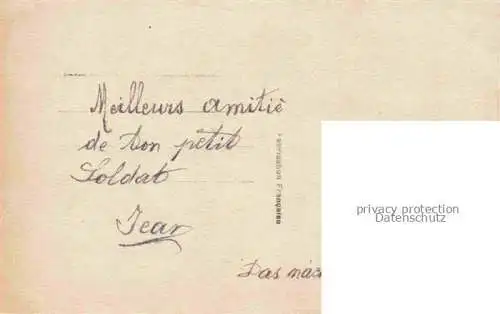 Meilleurs amitié
de ton petit
Soldat
Jean
Fabrication Française
privacy protection
Datenschutz